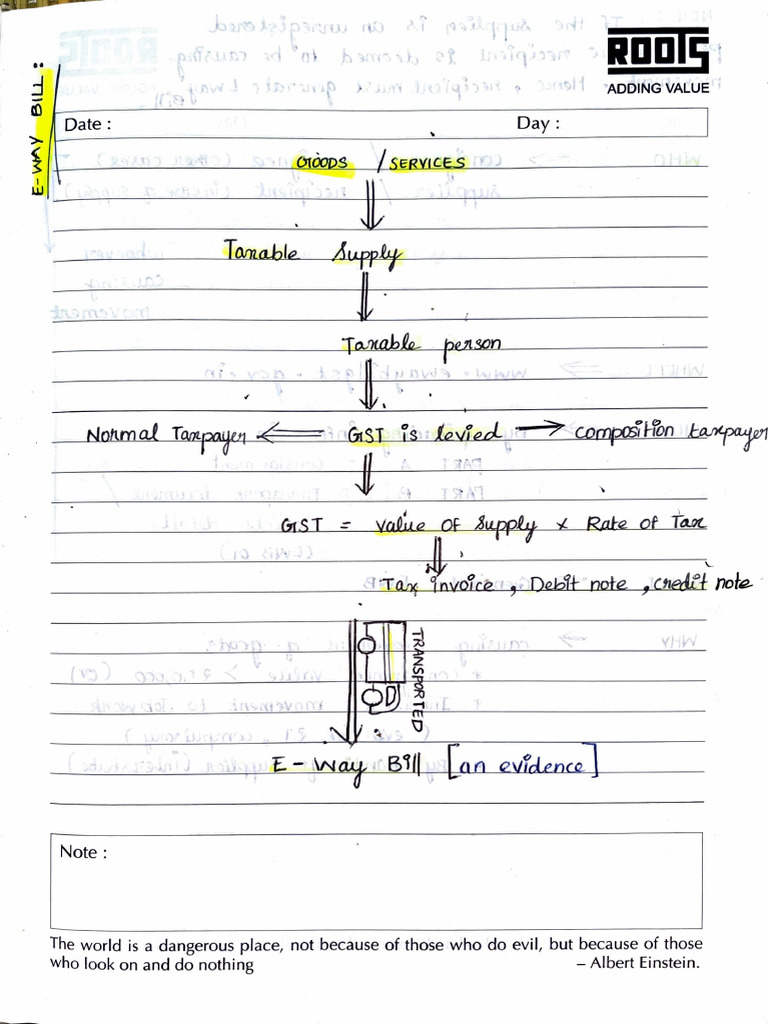 ROOTS
ADDING VALUE
E-WAY BILL :
Date : Day :
GOODS / SERVICES
Taxable Supply
Taxable person
Normal Taxpayer GST is levied composition taxpayer
GST = value of Supply x Rate of Tax
Tax invoice , Debit note , credit note
TRANSPORTED
E - Way Bill [an evidence]
Note :
The world is a dangerous place, not because of those who do evil, but because of those
who look on and do nothing – Albert Einstein.